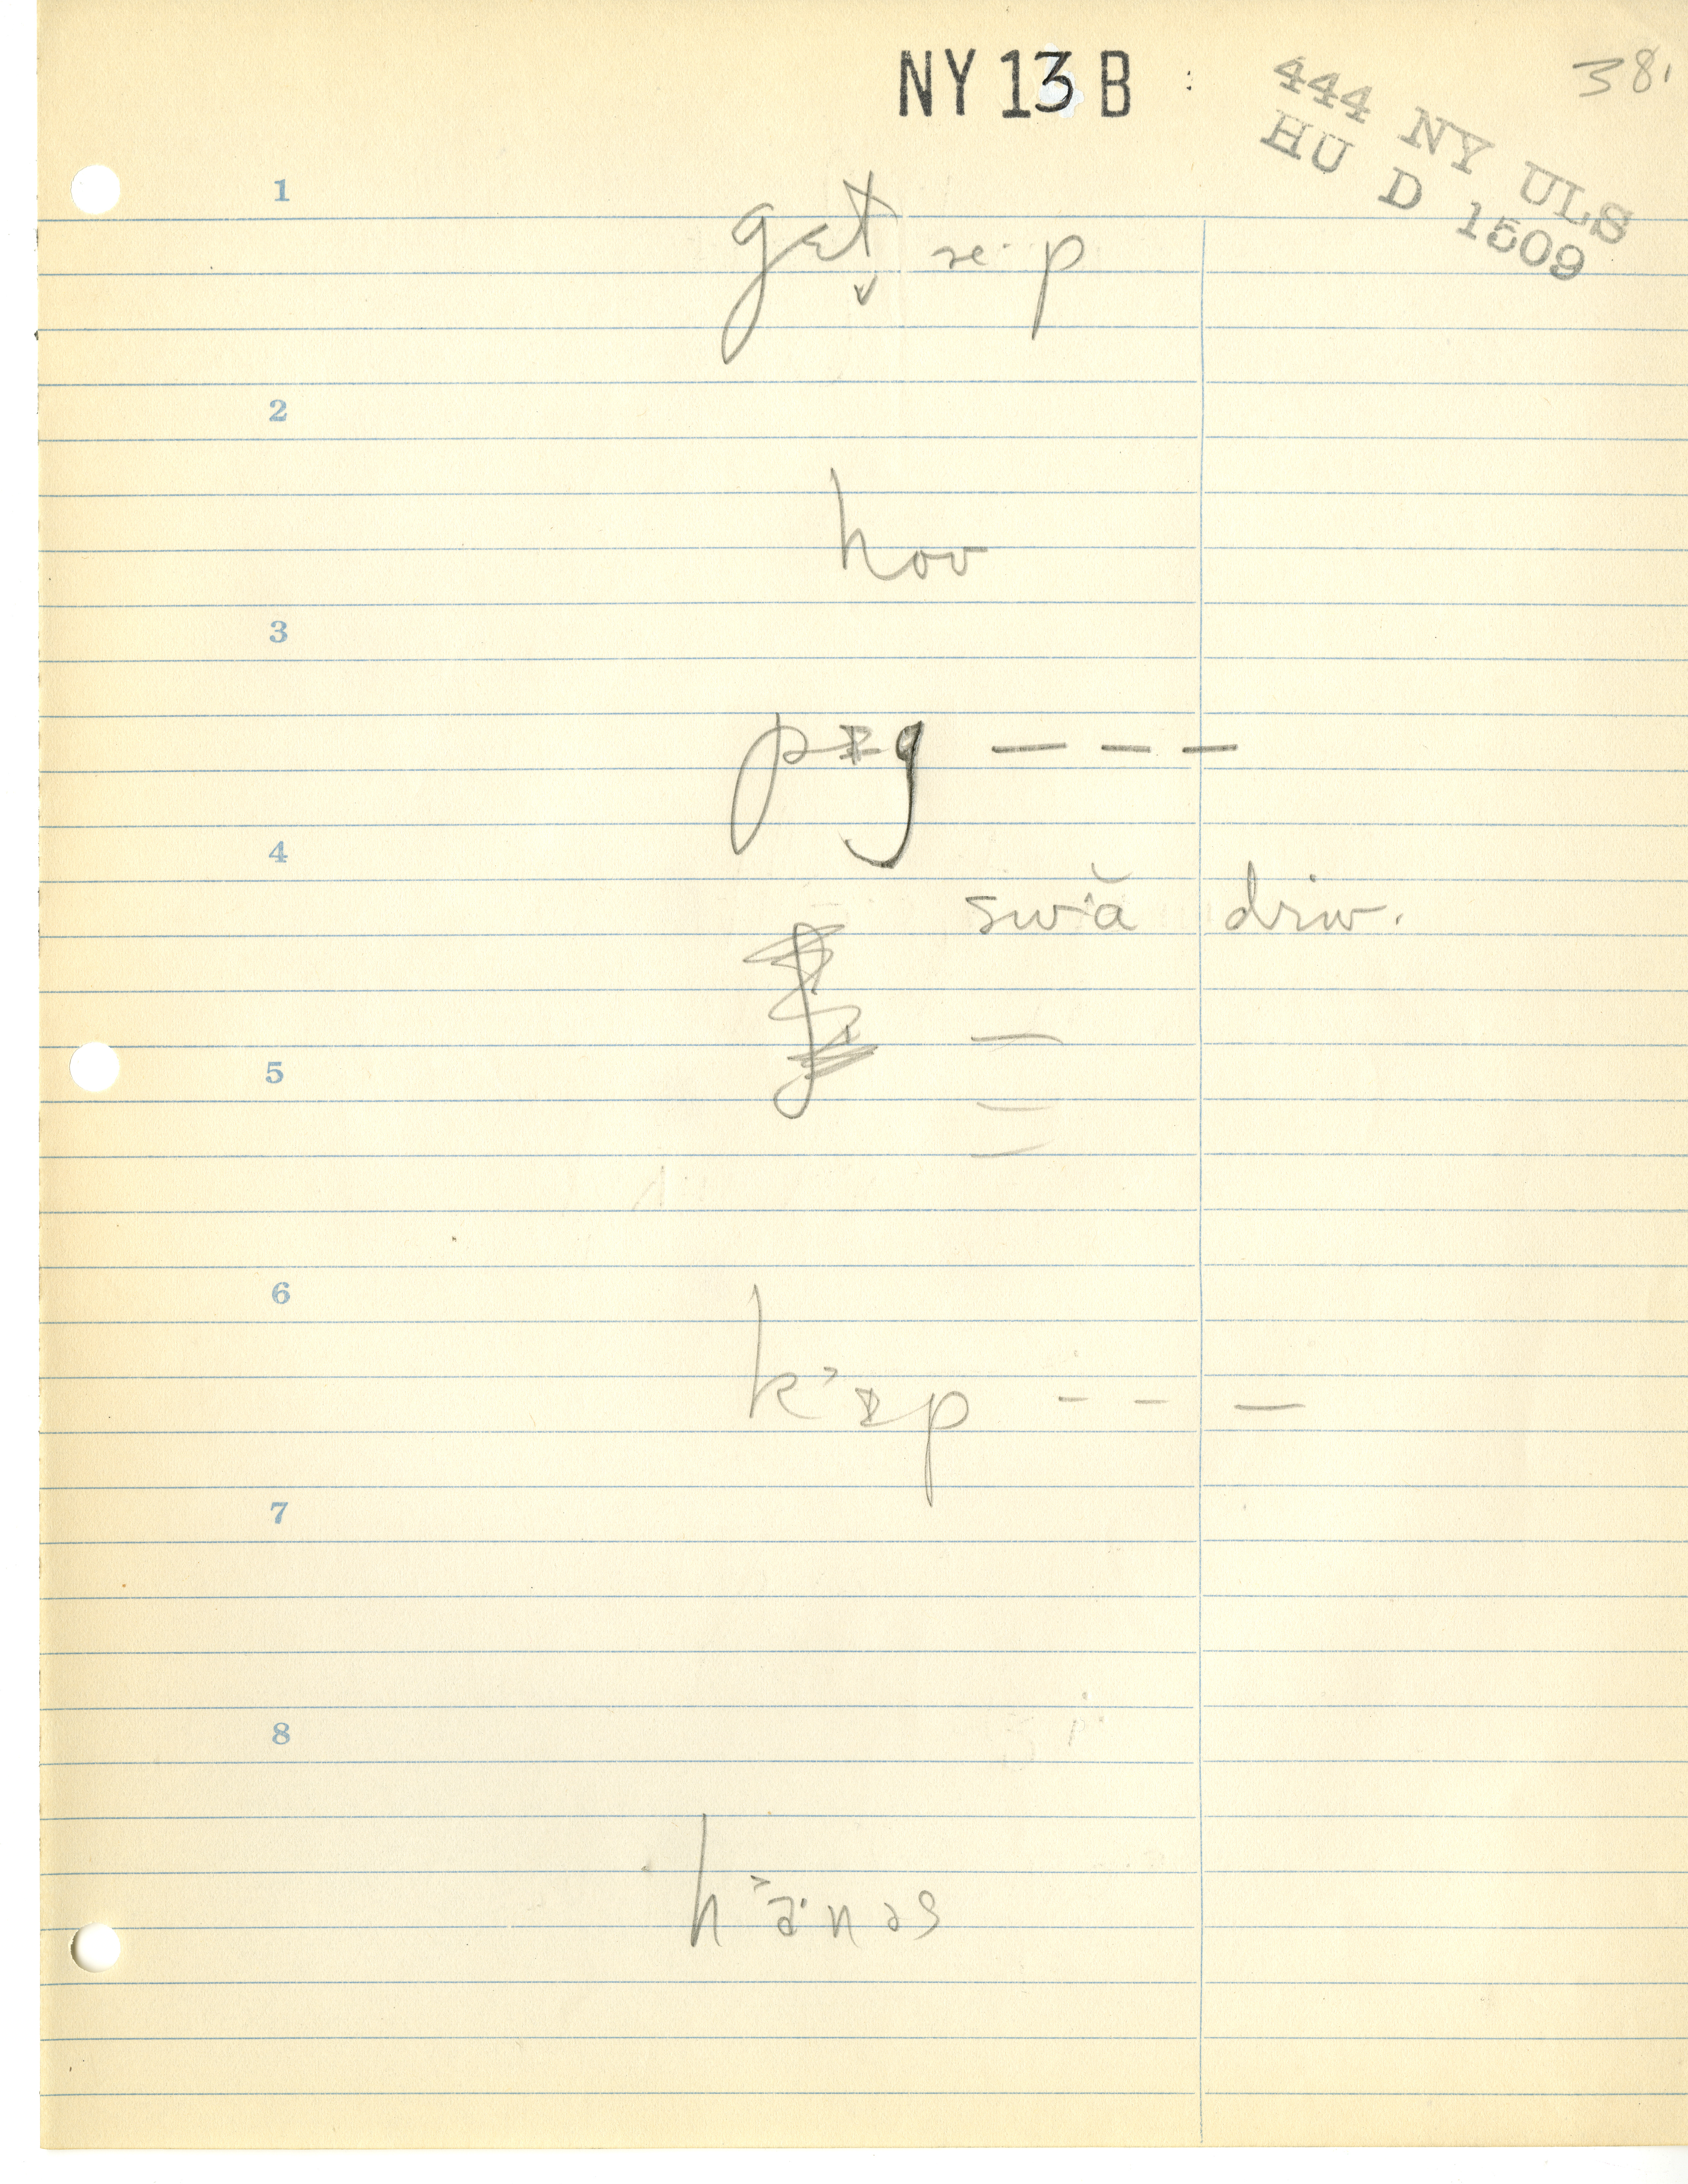 NY 13 B
38.
444 NY ULS
HU D 1509
1
gɛt̬ ɚ· p
2
hoʊ
3
pɪg — — —
4
drɪv.
5
6
k˃ɪp - - —
7
8
h˃a·nəs